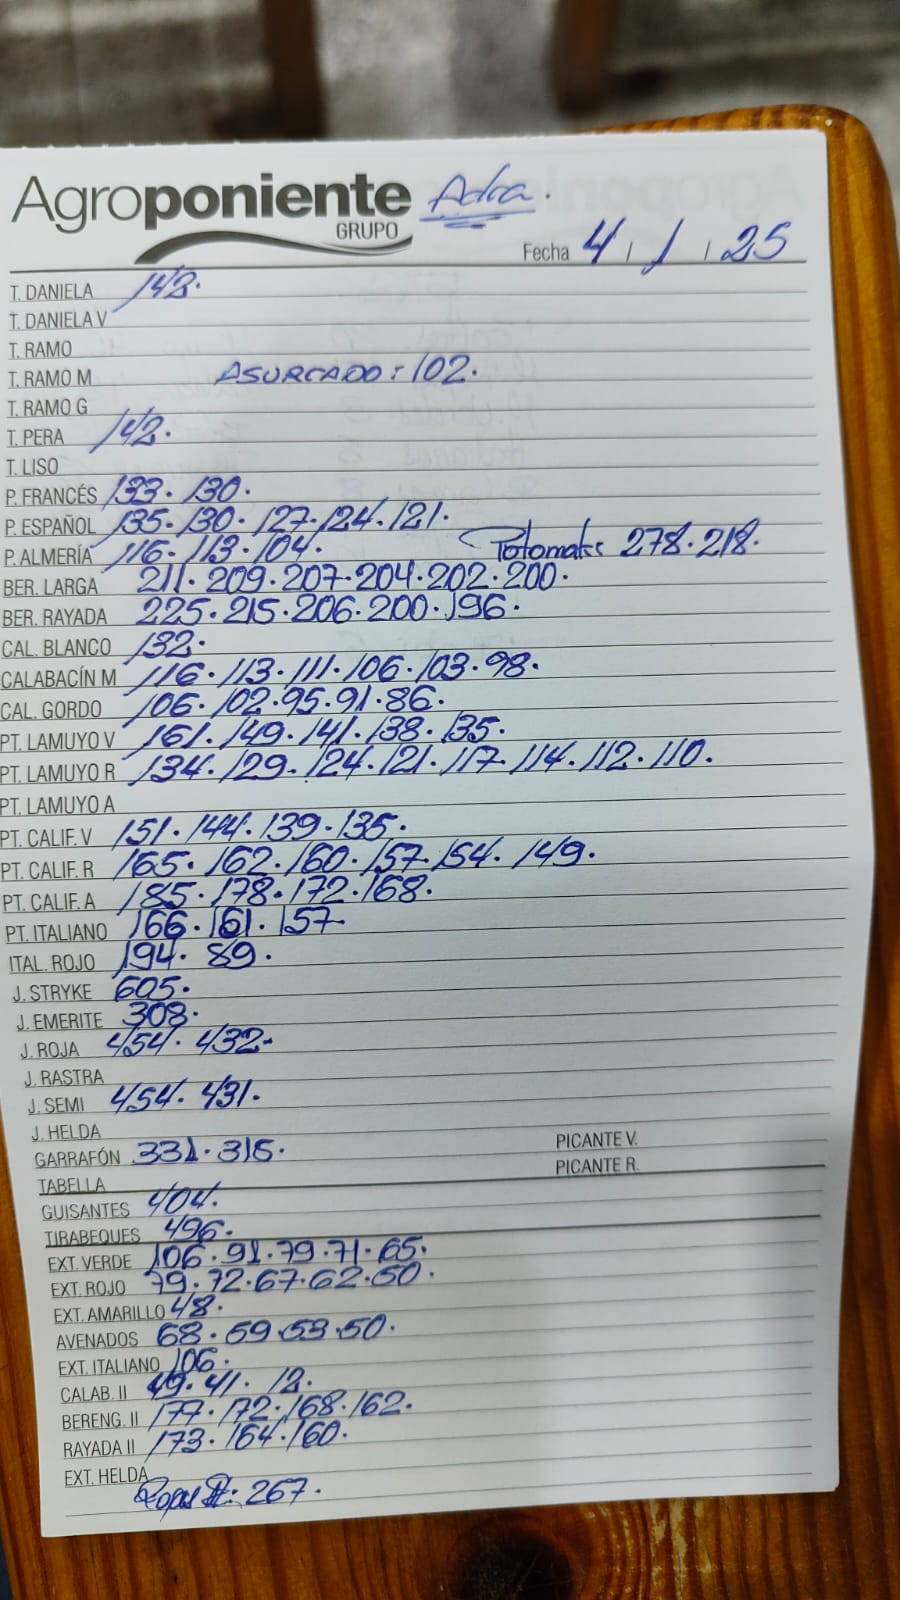 Agroponiente Adra.
GRUPO
Fecha 4 / 1 / 25
T. DANIELA 142.
T. DANIELA V
T. RAMO
T. RAMO M ASURCADO: 102.
T. RAMO G
T. PERA 142.
T. LISO
P. FRANCÉS 133. 130.
P. ESPAÑOL 135. 130. 127. 124. 121.
P. ALMERÍA 116. 113. 104. 278. 218.
BER. LARGA 211. 209. 207. 204. 202. 200.
BER. RAYADA 225. 215. 206. 200. 196.
CAL. BLANCO 132.
CALABACÍN M 116. 113. 111. 106. 103. 98.
CAL. GORDO 106. 102. 95. 91. 86.
PT. LAMUYO V 161. 149. 141. 138. 135.
PT. LAMUYO R 134. 129. 124. 121. 117. 114. 112. 110.
PT. LAMUYO A
PT. CALIF. V 151. 144. 139. 135.
PT. CALIF. R 165. 162. 160. 157. 154. 149.
PT. CALIF. A 185. 178. 172. 168.
PT. ITALIANO 166. 161. 157.
ITAL. ROJO 194. 89.
J. STRYKE 605.
J. EMERITE 308.
J. ROJA 454. 432.
J. RASTRA
J. SEMI 454. 431.
J. HELDA
PICANTE V.
GARRAFÓN 331. 315.
PICANTE R.
TABELLA
GUISANTES 404.
TIRABEQUES 496.
EXT. VERDE 106. 91. 79. 71. 65.
EXT. ROJO 79. 72. 67. 62. 50.
EXT. AMARILLO 48.
AVENADOS 68. 59. 53. 50.
EXT. ITALIANO 106.
CALAB. II 49. 41. 12.
BERENG. II 177. 172. 168. 162.
RAYADA II 173. 164. 160.
EXT. HELDA
267.